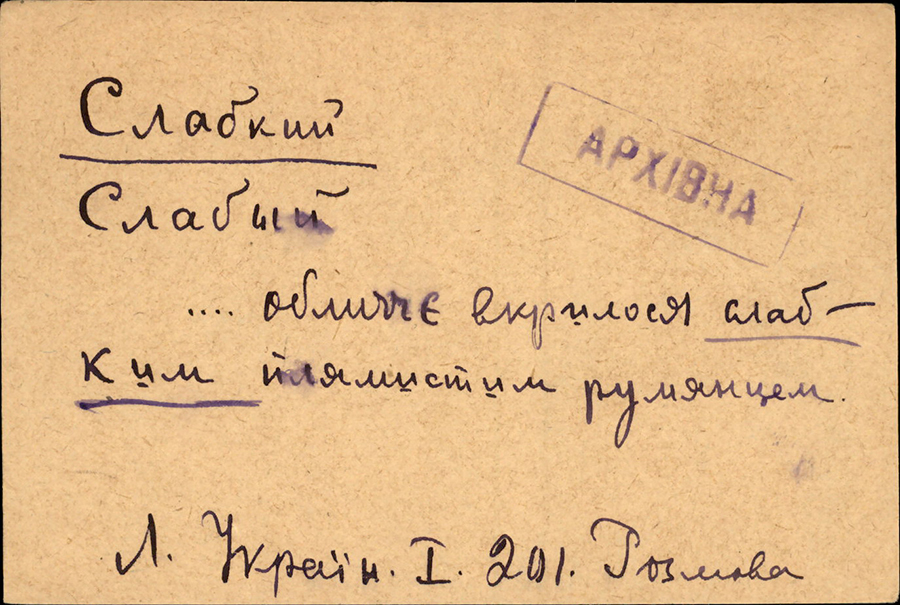 Слабкий
АРХІВНА
Слабий
.... обличчє вкрилося слаб-
ким плямистим румянцем.
Л. Україн. I. 201. Розмова